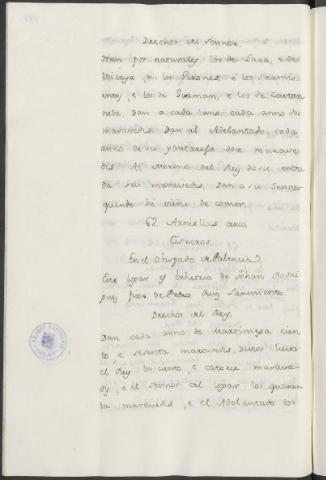 Derechos del Sennor.
Dan por naturales los de Lara, e de
Vizcaya, e los Girones, e los Sarmi
entos, e los de Guzman, e los de Castan
neda, Dan a cada uno cada anno dos
maravedis. Dan al Adelantado, cada
anno de su yantarefa doce marave
dis Al Merino del Rey de su entra
da sei maravedis, Dan a su Sennor
quando hi viene de comer.
62 Armellas arca
Cisneros.
En el Obispado de Palencia
Este logar es behetria de Johan Rodri
guez fijo de Pedro Ruiz Sarmiento.
Derechos del Rey.
Dan cada anno de Martiniega cien
to, e sesenta maravedis destos lieva
el Rey los ciento, e catorce marave
dis, e el Sennor del logar los quaren
ta maravedis, e el Adelantado los